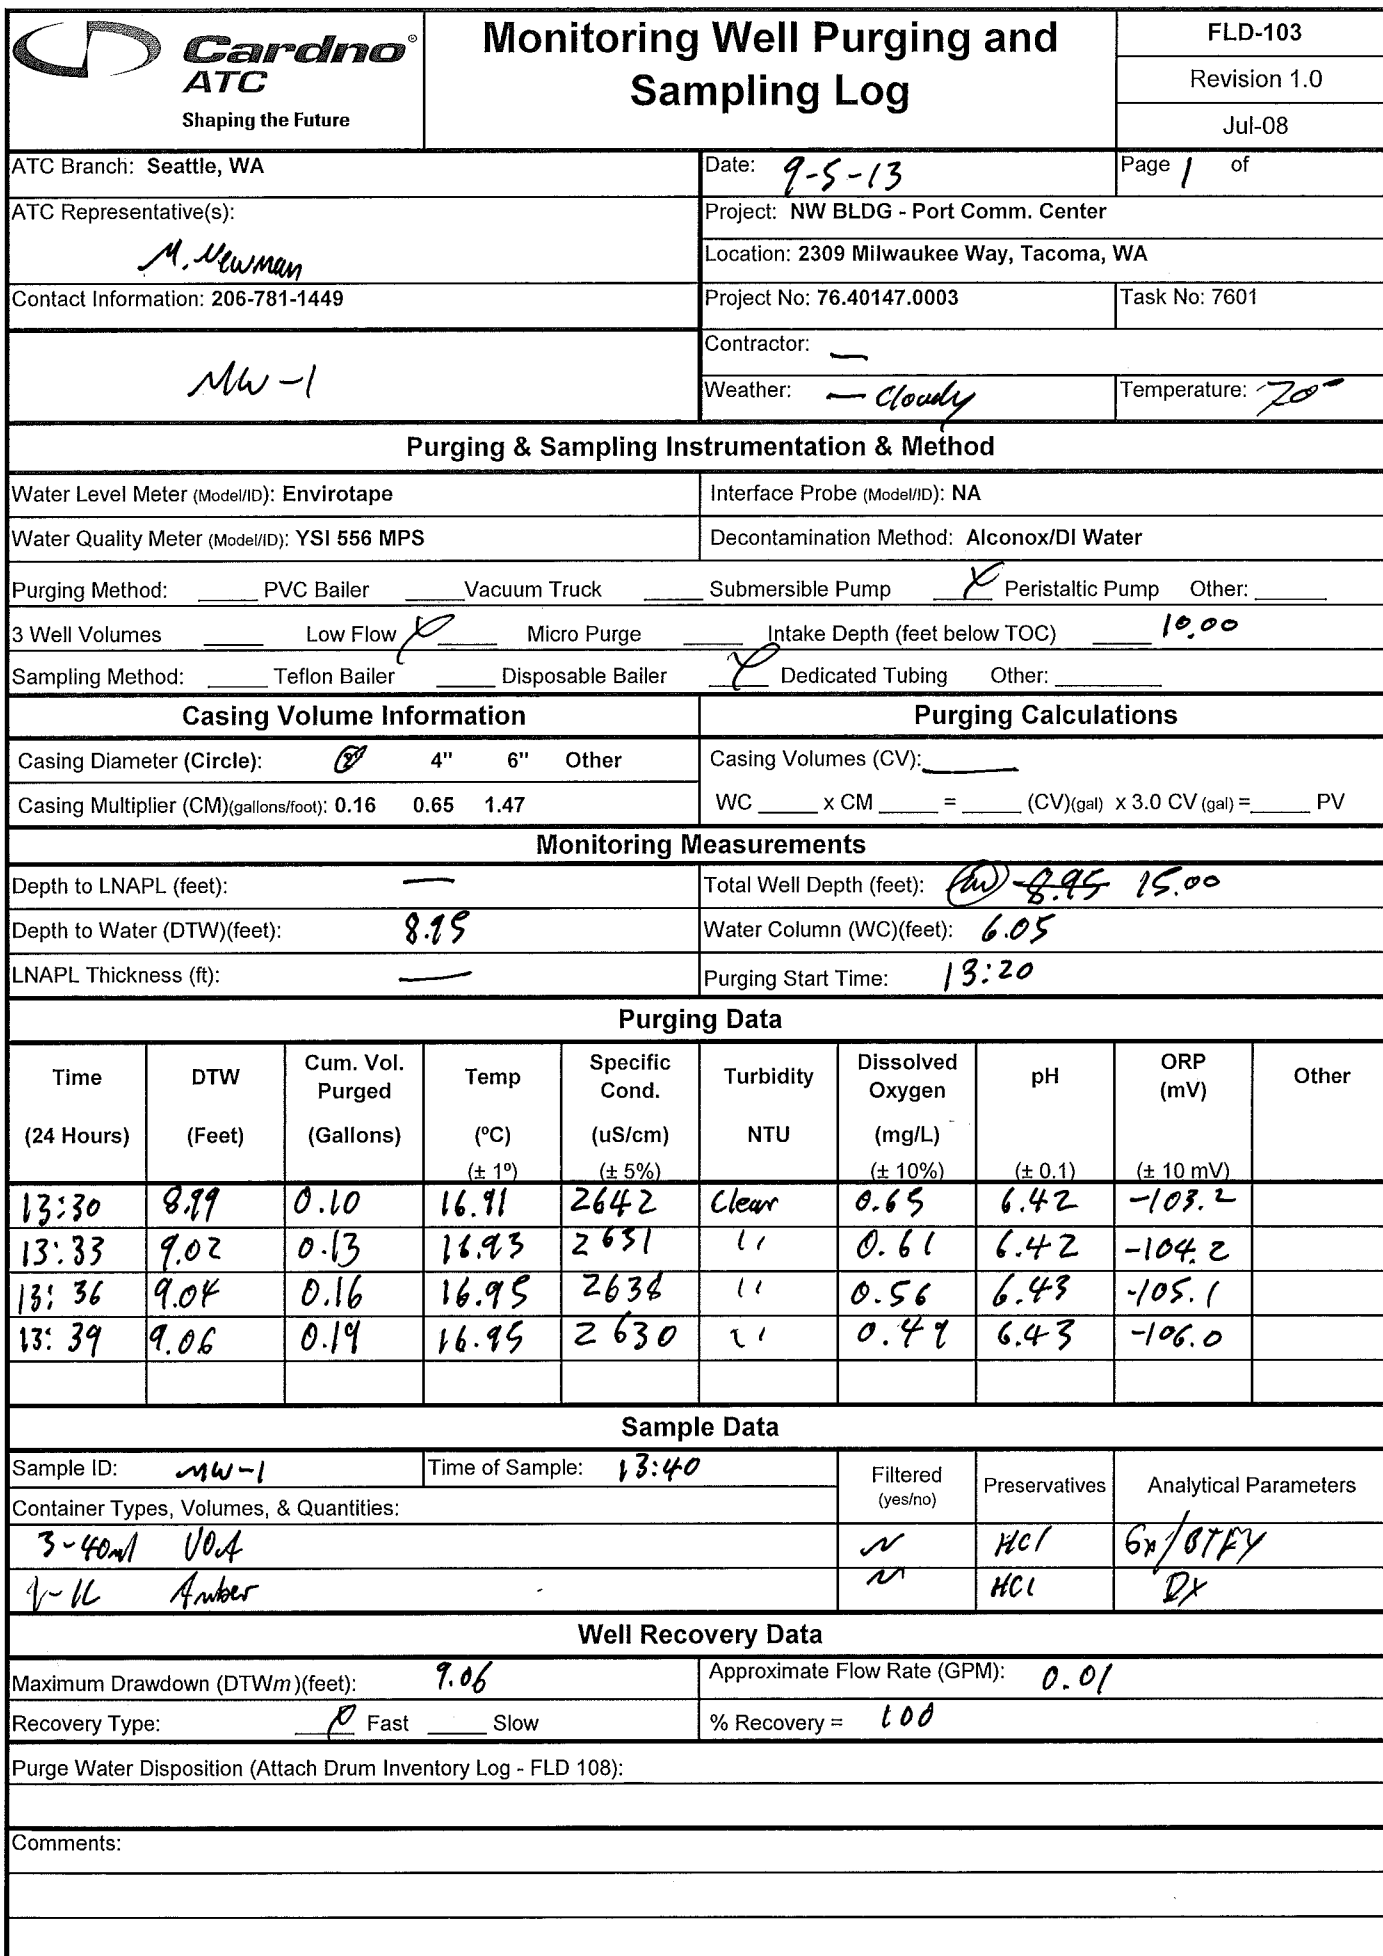 Cardno®
ATC
Shaping the Future
Monitoring Well Purging and
Sampling Log
FLD-103
Revision 1.0
Jul-08
ATC Branch: Seattle, WA
Date: 9-5-13
Page 1 of
ATC Representative(s):
M. Newman
Project: NW BLDG - Port Comm. Center
Location: 2309 Milwaukee Way, Tacoma, WA
Contact Information: 206-781-1449
Project No: 76.40147.0003
Task No: 7601
MW-1
Contractor: —
Weather: — Cloudy
Temperature: 70°
Purging & Sampling Instrumentation & Method
Water Level Meter (Model/ID): Envirotape
Interface Probe (Model/ID): NA
Water Quality Meter (Model/ID): YSI 556 MPS
Decontamination Method: Alconox/DI Water
Purging Method: ____ PVC Bailer ____ Vacuum Truck ____ Submersible Pump X Peristaltic Pump Other: ____
3 Well Volumes ____ Low Flow X Micro Purge ____ Intake Depth (feet below TOC) ____ 10.00
Sampling Method: ____ Teflon Bailer ____ Disposable Bailer X Dedicated Tubing Other: ____
Casing Volume Information
Purging Calculations
Casing Diameter (Circle): 2" 4" 6" Other
Casing Volumes (CV): ____
Casing Multiplier (CM)(gallons/foot): 0.16 0.65 1.47
WC ____ x CM ____ = ____ (CV)(gal) x 3.0 CV (gal) = ____ PV
Monitoring Measurements
Depth to LNAPL (feet): —
Total Well Depth (feet): 8.95 15.00
Depth to Water (DTW)(feet): 8.95
Water Column (WC)(feet): 6.05
LNAPL Thickness (ft): —
Purging Start Time: 13:20
Purging Data
Time (24 Hours) DTW (Feet) Cum. Vol. Purged (Gallons) Temp (ºC) (± 1º) Specific Cond. (uS/cm) (± 5%) Turbidity NTU Dissolved Oxygen (mg/L) (± 10%) pH (± 0.1) ORP (mV) (± 10 mV) Other
13:30 8.99 0.10 16.91 2642 Clear 0.65 6.42 -103.2
13:33 9.02 0.13 16.93 2631 " 0.61 6.42 -104.2
13:36 9.04 0.16 16.95 2638 " 0.56 6.43 -105.1
13:39 9.06 0.19 16.95 2630 " 0.49 6.43 -106.0
Sample Data
Sample ID: MW-1
Time of Sample: 13:40
Filtered (yes/no)
Preservatives
Analytical Parameters
Container Types, Volumes, & Quantities:
3-40ml VOA N HCl Gx/BTEX
1L Amber N HCl Dx
Well Recovery Data
Maximum Drawdown (DTWm)(feet): 9.06
Approximate Flow Rate (GPM): 0.01
Recovery Type: X Fast ____ Slow
% Recovery = 100
Purge Water Disposition (Attach Drum Inventory Log - FLD 108):
Comments: